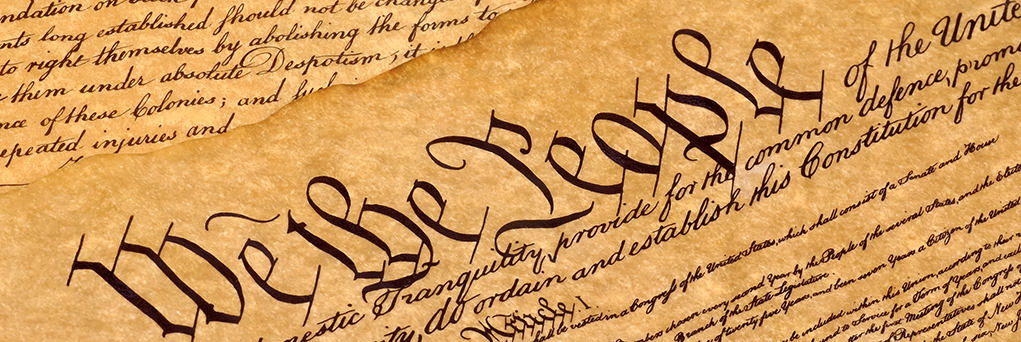 ndation on
nts long established should not be chang
to right themselves by abolishing the forms to
them under absolute Despotism, it is th
nce of these Colonies; and such
epeated injuries and
We the People of the Unite
estic Tranquility, provide for the common defence, promo
ty, do ordain and establish this Constitution for the
Article I.
be vested in a Congress of the United States, which shall consist of a Senate and House
chosen every second Year by the People of the several States, and the Elect
Branch of the State Legislature.
of twenty five Years, and been seven Years a Citizen of the United
be included within this Union, according to their
to Service for a Term of Years, and
after the first Meeting of the Congress
Representatives shall not
the State of New
six, New J